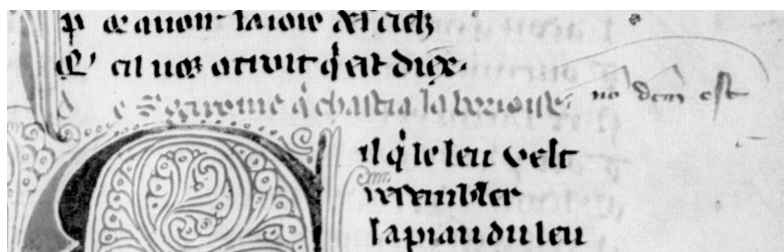 p͛ auoir la ioie
Q͛ cil nos otroit q̓ est diex.
De s̃ gerome q̓ chastia la borioise. no dem̃ est
il q̓ le leu velt
resembler
la piau du leu